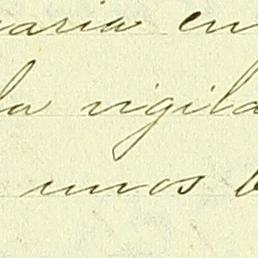 uaria en
la vigila
unos b